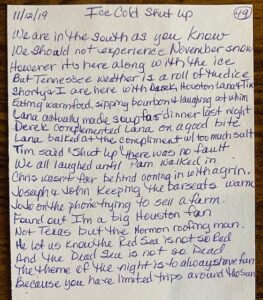 11/12/19 Ice Cold Shut up 49
We are in the South as you know
We should not experience November snow
However its here along with the ice
But Tennessee wether is a roll of the dice
Shorty & I are here with Derek, Houston Lana & Tim
Eating warm food, sipping bourbon & laughing at him
Lana actually made soup for dinner last night
Derek complemented Lana on a good bite
Lana balked at the compliment w/ too much salt
Tim said "Shut up" there was no fault
We all laughed until Pam walked in
Chris wasnt far behind coming in with a grin.
Joseph & John keeping the barseats warm
JoJo on the phone trying to sell a farm.
Found out I'm a big Houston fan
Not Texas but the Mormon roofing man.
He let us know the Red Sea is not so Red
And the Dead Sea is not so Dead
The theme of the night is to always have fun
Because you have limited trips around the sun